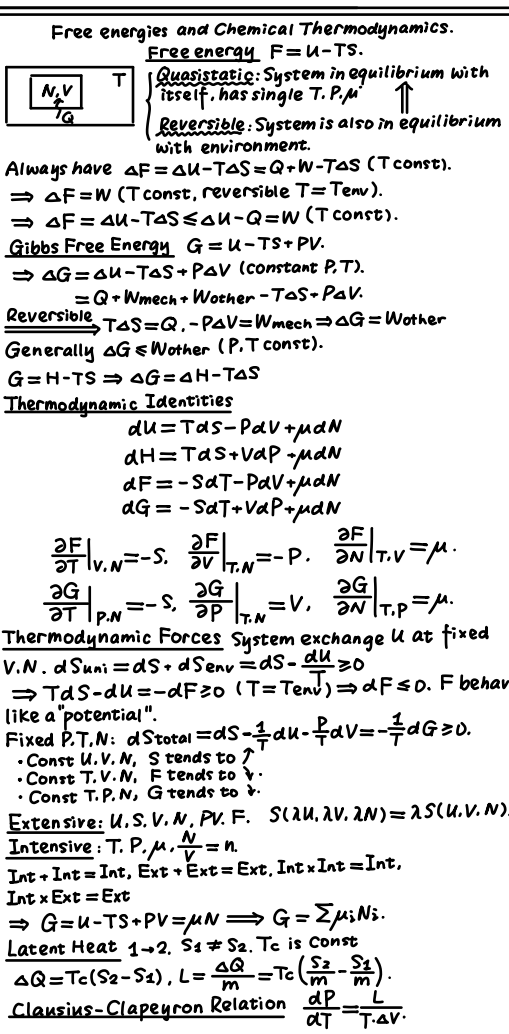 Free energies and Chemical Thermodynamics.
Free energy F = U - TS.
T
N,V
Q
Quasistatic: System in equilibrium with
itself, has single T. P. μ
⇑
Reversible: System is also in equilibrium
with environment.
Always have ΔF = ΔU - TΔS = Q + W - TΔS (T const).
⇒ ΔF = W (T const, reversible T = Tenv).
⇒ ΔF = ΔU - TΔS ≤ ΔU - Q = W (T const).
Gibbs Free Energy G = U - TS + PV.
⇒ ΔG = ΔU - TΔS + PΔV (constant P, T).
= Q + Wmech + Wother - TΔS + PΔV.
Reversible ⟹ TΔS = Q, -PΔV = Wmech ⇒ ΔG = Wother
Generally ΔG ≤ Wother (P, T const).
G = H - TS ⇒ ΔG = ΔH - TΔS
Thermodynamic Identities
dU = TdS - PdV + μdN
dH = TdS + VdP + μdN
dF = -SdT - PdV + μdN
dG = -SdT + VdP + μdN
∂F/∂T |V.N = -S. ∂F/∂V |T.N = -P. ∂F/∂N |T.V = μ.
∂G/∂T |P.N = -S, ∂G/∂P |T.N = V, ∂G/∂N |T.P = μ.
Thermodynamic Forces System exchange U at fixed
V.N. dSuni = dS + dSenv = dS - dU/T ≥ 0
⇒ TdS - dU = -dF ≥ 0 (T = Tenv) ⇒ dF ≤ 0. F behav
like a "potential".
Fixed P.T.N: dStotal = dS - 1/T dU - P/T dV = -1/T dG ≥ 0.
· Const U.V.N, S tends to ↑
· Const T.V.N, F tends to ↓.
· Const T.P.N, G tends to ↓.
Extensive: U, S. V. N, PV. F. S(λU, λV, λN) = λS(U.V.N).
Intensive: T. P. μ, N/V = n.
Int + Int = Int, Ext + Ext = Ext, Int × Int = Int,
Int × Ext = Ext
⇒ G = U - TS + PV = μN ⟹ G = ΣμiNi.
Latent Heat 1→2, S1 ≠ S2. Tc is Const
ΔQ = Tc(S2 - S1), L = ΔQ/m = Tc(S2/m - S1/m).
Clausius-Clapeyron Relation dP/dT = L/T.ΔV.